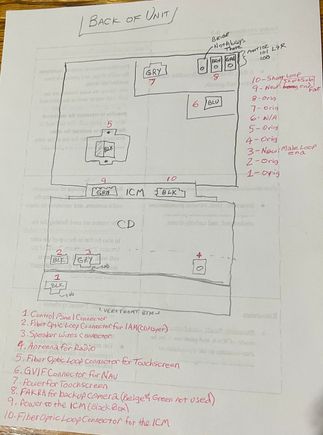 BACK OF UNIT
BEIGE
Not Always
There
BGE
GRN
GRY
7
8
6
BLU
5
BLK
9
10
GRN
ICM
BLK
CD
2
3
BLK
GRY
4
1
BLK
9 - New
8 - Orig
7 - Orig
6 - N/A
5 - Orig
4 - Orig
3 - New Male Loop
end
2 - Orig
1 - Orig
1 Control Panel Connector
2. Fiber Optic Loop Connector for IAM (CD Player)
3. Speaker Wires Connector
4. Antenna for Radio
5. Fiber Optic Loop Connector for Touchscreen
6. GVIF Connector for NAV
7. Power for Touchscreen
8. FAKRA for backup Camera (Beige & Green not used)
9. Power to the ICM (Black Box)
10. Fiber Optic Loop Connector for the ICM